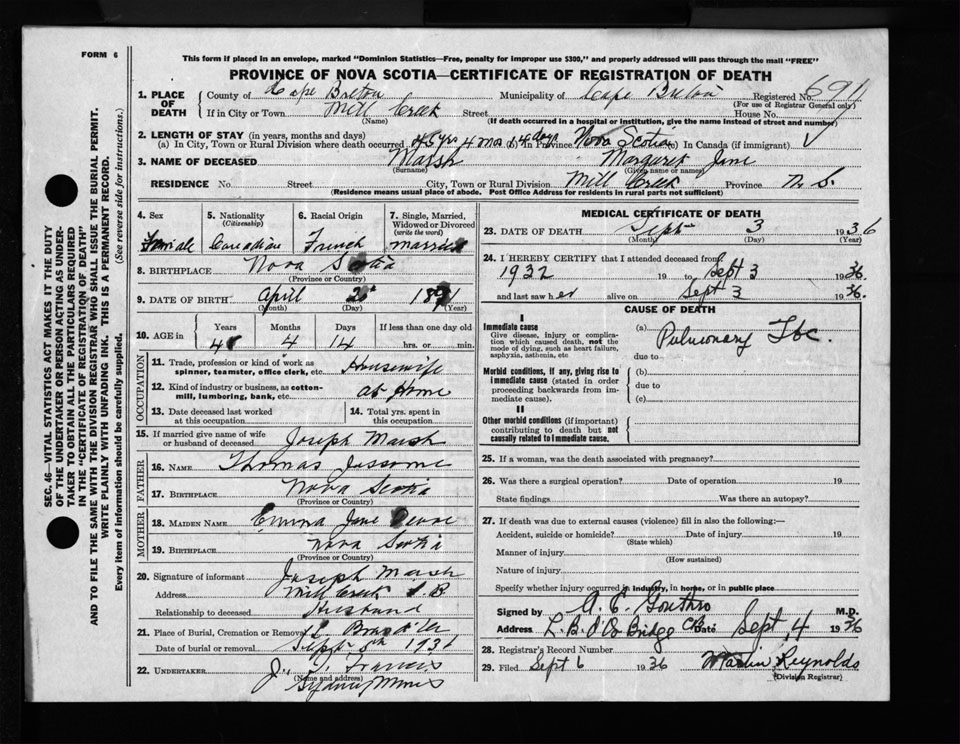 FORM 6
This form if placed in an envelope, marked "Dominion Statistics—Free, penalty for improper use $300," and properly addressed will pass through the mail "FREE"
PROVINCE OF NOVA SCOTIA—CERTIFICATE OF REGISTRATION OF DEATH
1. PLACE OF DEATH County of Cape Breton Municipality of Cape Breton Registered No. 6911
(For use of Registrar General only)
If in City or Town Mill Creek Street House No.
(Name) (If death occurred in a hospital or institution, give the name instead of street and number)
2. LENGTH OF STAY (in years, months and days)
(a) In City, Town or Rural Division where death occurred 45 yrs 4 mos 14 days (b) In Province Nova Scotia (c) In Canada (if immigrant)
3. NAME OF DECEASED Marsh Margaret Jane
(Surname) (Given name or names)
RESIDENCE No. Street City, Town or Rural Division Mill Creek Province N. S.
(Residence means usual place of abode. Post Office Address for residents in rural parts not sufficient)
4. Sex 5. Nationality (Citizenship) 6. Racial Origin 7. Single, Married, Widowed or Divorced (write the word)
Female Canadian French Married
8. BIRTHPLACE Nova Scotia
(Province or Country)
9. DATE OF BIRTH April
(Month) (Day) (Year)
10. AGE in Years Months Days If less than one day old
4 14 hrs. or min.
OCCUPATION
11. Trade, profession or kind of work as spinner, teamster, office clerk, etc. Housewife
12. Kind of industry or business, as cotton-mill, lumbering, bank, etc. at Home
13. Date deceased last worked at this occupation
14. Total yrs. spent in this occupation
15. If married give name of wife or husband of deceased Joseph Marsh
FATHER
16. NAME Thomas Jessome
17. BIRTHPLACE Nova Scotia
(Province or Country)
MOTHER
18. MAIDEN NAME Emma Jane
19. BIRTHPLACE Nova Scotia
(Province or Country)
20. Signature of informant Joseph Marsh
Address Mill Creek C B
Relationship to deceased Husband
21. Place of Burial, Cremation or Removal
Date of burial or removal Sept 5th 1936
22. UNDERTAKER J. J. Francis
(Name and address)
Sydney Mines
MEDICAL CERTIFICATE OF DEATH
23. DATE OF DEATH Sept 3 1936
(Month) (Day) (Year)
24. I HEREBY CERTIFY that I attended deceased from
1932 19 to Sept 3 1936.
and last saw her alive on Sept 3 1936.
CAUSE OF DEATH
I
Immediate cause
Give disease, injury or complication which caused death, not the mode of dying, such as heart failure, asphyxia, asthenia, etc
(a) Pulmonary Tbc.
due to
Morbid conditions, if any, giving rise to immediate cause (stated in order proceeding backwards from immediate cause).
(b)
due to
(c)
II
Other morbid conditions (if important) contributing to death but not causally related to immediate cause.
25. If a woman, was the death associated with pregnancy?
26. Was there a surgical operation? Date of operation 19
State findings Was there an autopsy?
27. If death was due to external causes (violence) fill in also the following:—
Accident, suicide or homicide? Date of injury 19
(State which)
Manner of injury
(How sustained)
Nature of injury
Specify whether injury occurred in industry, in home, or in public place
Signed by A. E. Gouthro M.D.
Address L. B. d'Or Bridge CB Date Sept. 4 1936
28. Registrar's Record Number
29. Filed Sept 6 1936 Martin Reynolds
(Division Registrar)
SEC. 46—VITAL STATISTICS ACT MAKES IT THE DUTY
OF THE UNDERTAKER OR PERSON ACTING AS UNDER-
TAKER TO OBTAIN ALL THE PARTICULARS REQUIRED
IN THE "CERTIFICATE OF REGISTRATION OF DEATH"
AND TO FILE THE SAME WITH THE DIVISION REGISTRAR WHO SHALL ISSUE THE BURIAL PERMIT.
WRITE PLAINLY WITH UNFADING INK. THIS IS A PERMANENT RECORD.
Every item of information should be carefully supplied. (See reverse side for instructions.)